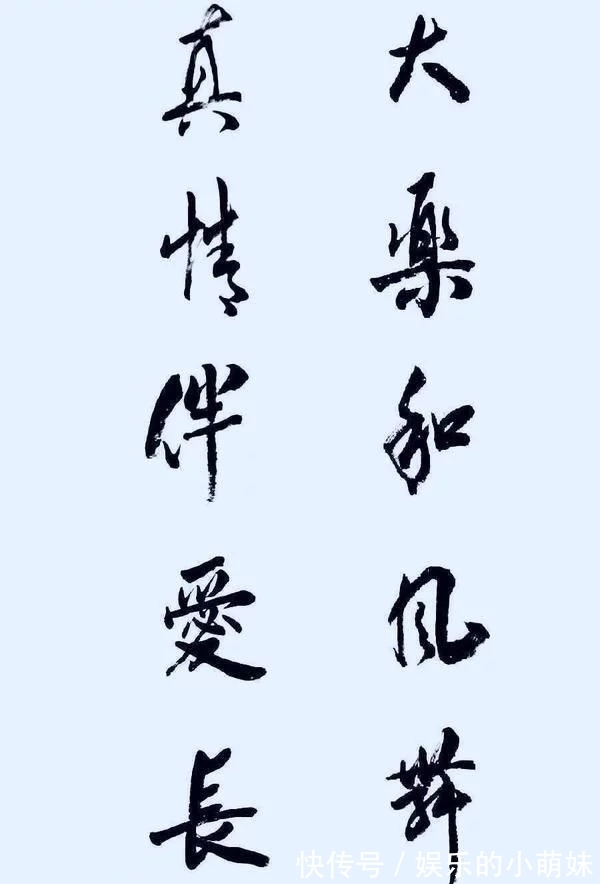 大樂和風舞
真情伴愛長
快传号/娱乐的小萌妹